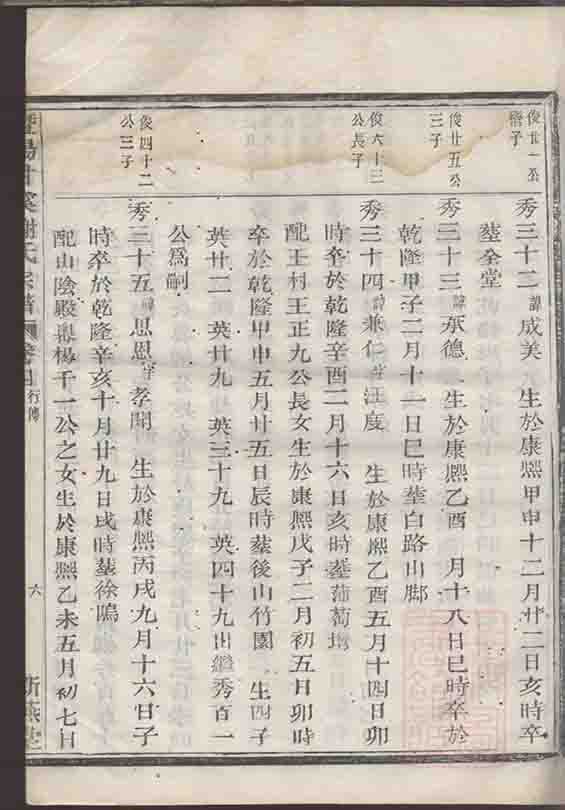 俊廿一公
秀三十二 諱成美 生於康熈甲申十二月廿二日亥時卒
塟金堂
俊廿五公
三子
秀三十三 諱承德 生於康熈乙酉 月十八日巳時卒於
乾隆甲子二月十一日巳時塟白路山脚
俊六十三
公長子
秀三十四 諱兼仁字汪度 生於康熈乙酉五月十四日卯
時卒於乾隆辛酉二月十六日亥時塟葡萄
配王村王正九公長女生於康熈戊子二月初五日卯時
卒於乾隆甲申五月廿五日辰時塟後山竹園 生四子
英廿二 英廿九 英三十九 英四十九出繼秀百一
公爲嗣
俊四十二
公三子
秀三十五 諱思恩字孝聞 生於康熈丙戌九月十六日子
時卒於乾隆辛亥十月廿九日戌時塟徐塢
配山陰殿楊千一公之女生於康熈乙未五月初七日
謝氏宗譜 卷 行傳 六